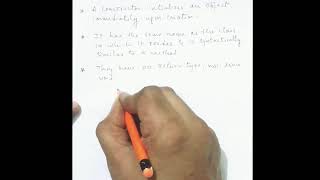 * A constructor initializes an object
immediately upon creation.
* It has the same name as the class
in which it resides & is syntactically
similar to a method.
* They have no return type, not even
void